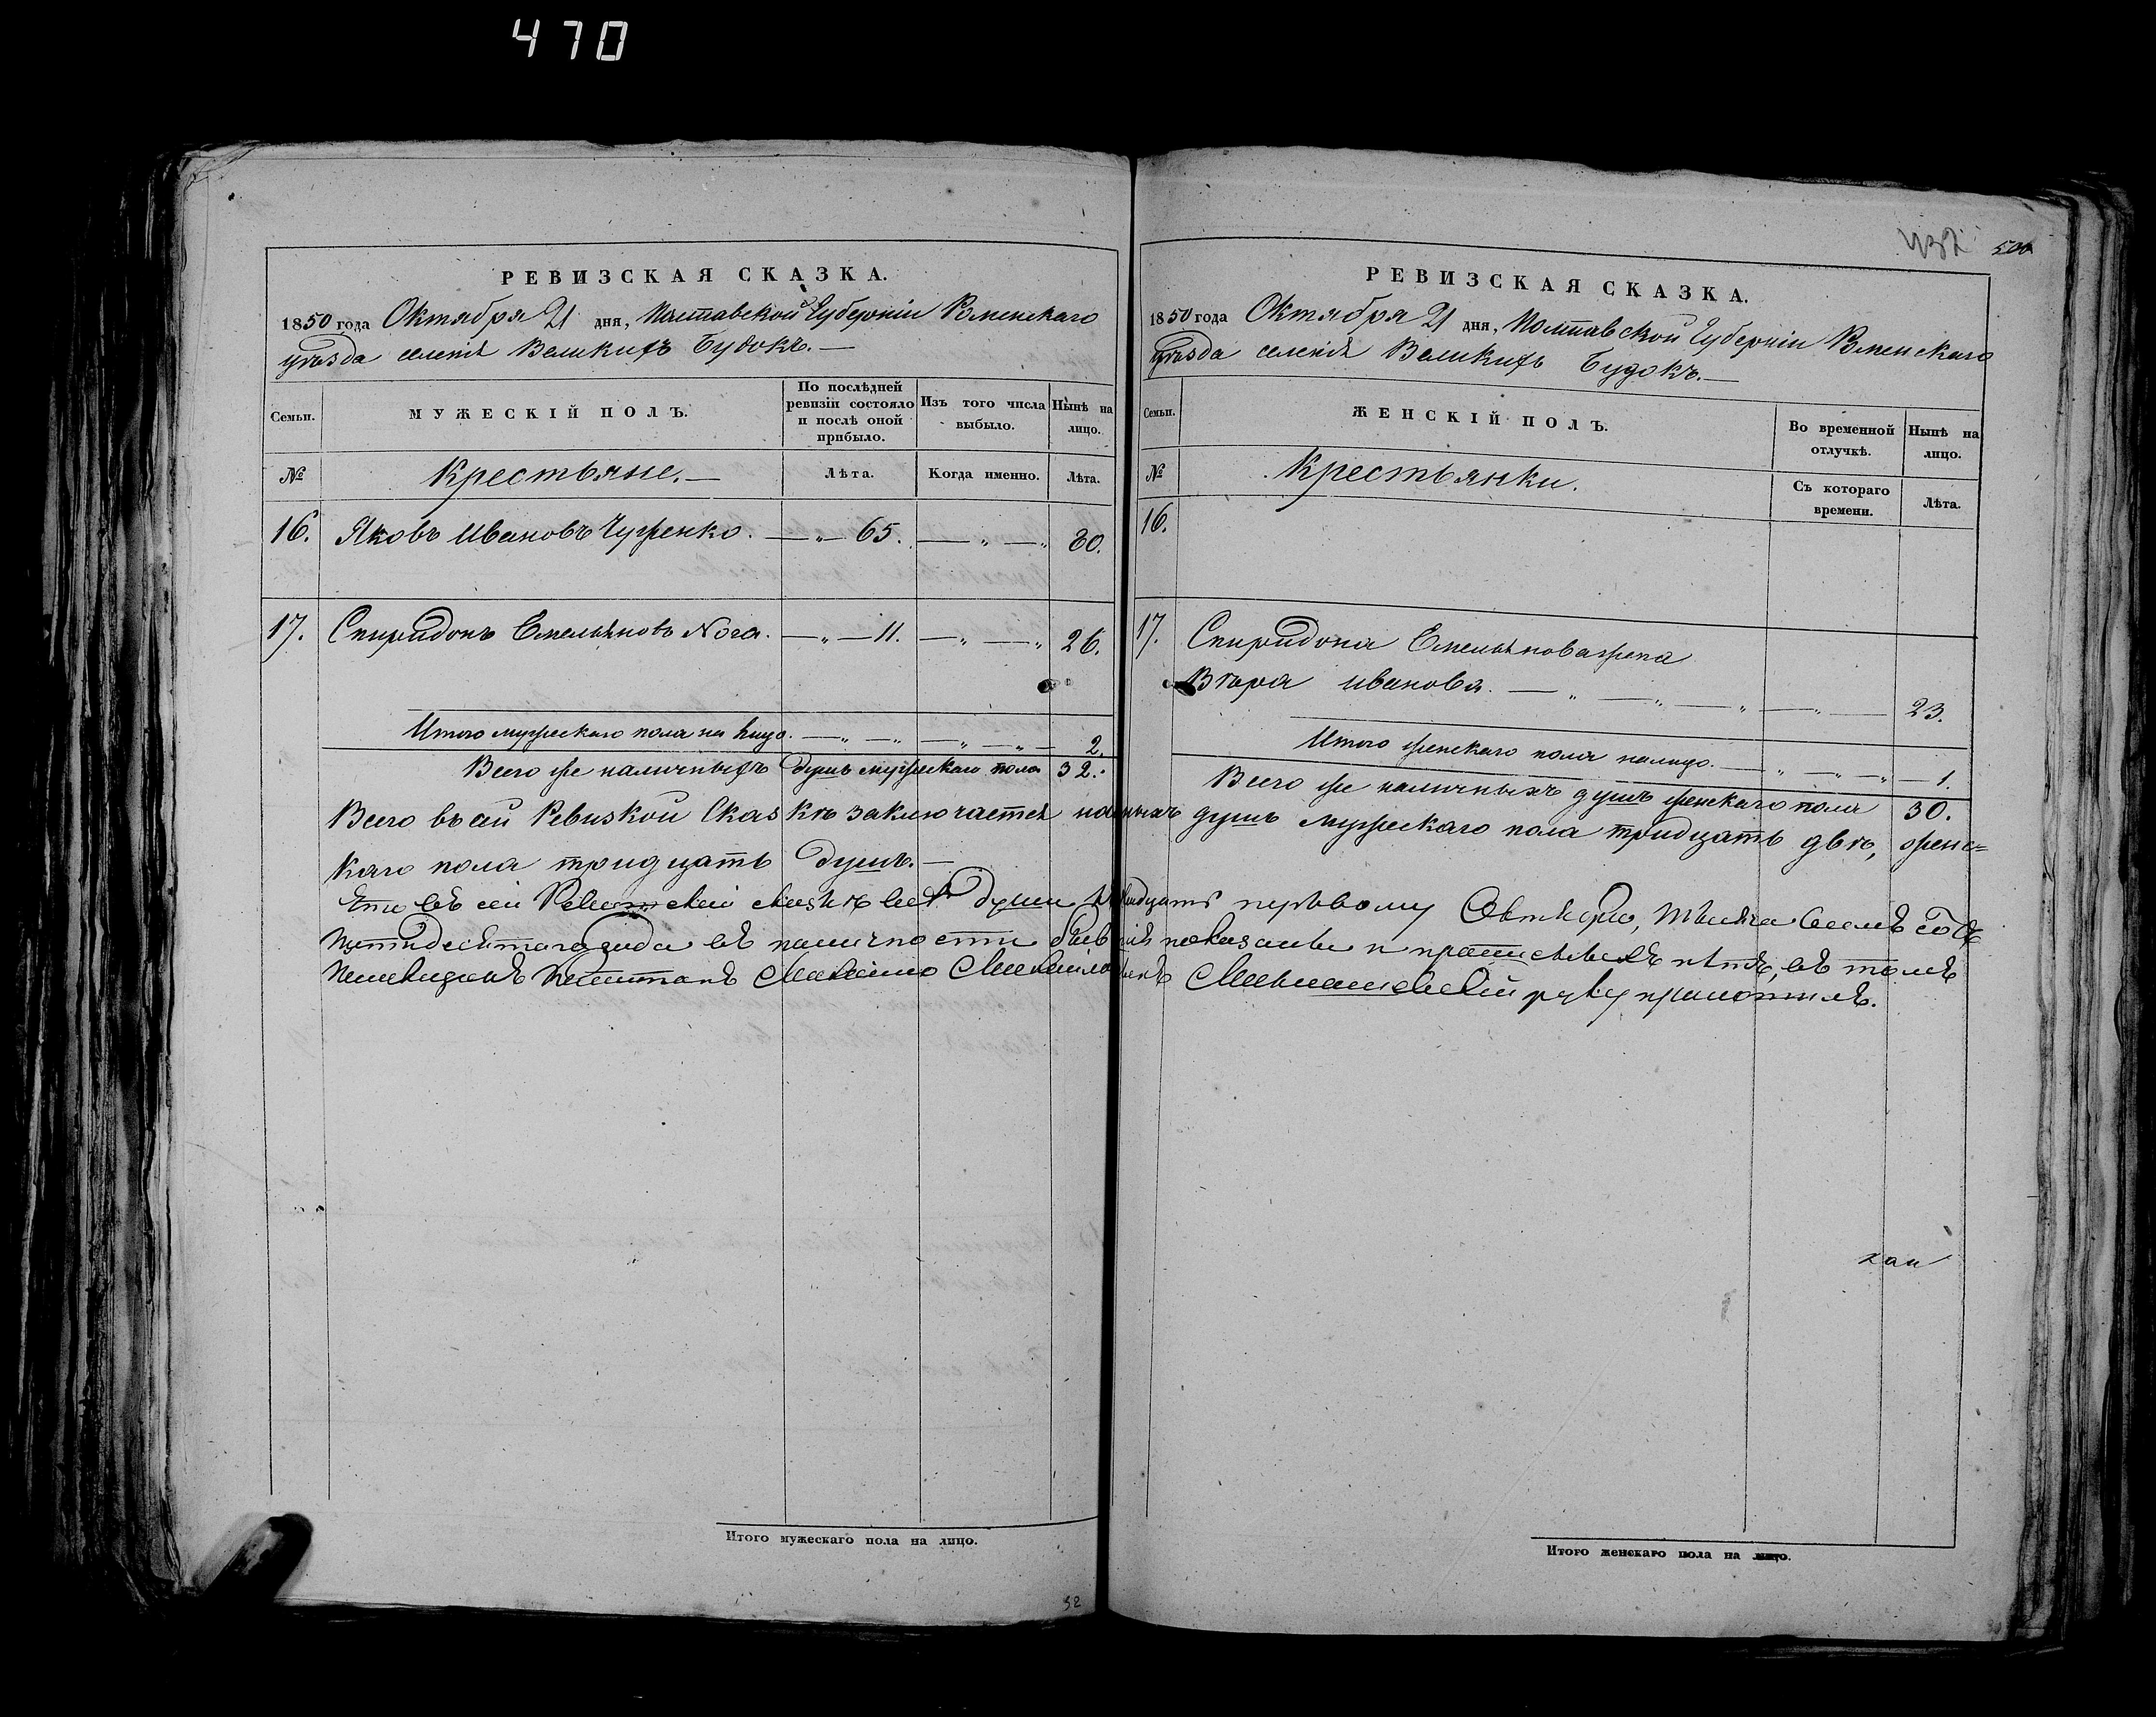 470
432 500
РЕВИЗСКАЯ СКАЗКА.
1850 года Октября 21 дня, Полтавской Губерніи Роменскаго
уѣзда селенія Великихъ Будокъ.—
Семьи. МУЖЕСКІЙ ПОЛЪ. По послѣдней ревизіи состояло и послѣ оной прибыло. Изъ того числа выбыло. Нынѣ на лицо.
№ Крестьяне.— Лѣта. Когда именно. Лѣта.
16. Яковъ Ивановъ Чуженко. — „ — 65. — „ — „ 80.
17. Спиридонъ Емельяновъ Нога. — „ — 11. — „ — „ 26.
Итого мужескаго пола на лицо. — „ — „ — „ — „ — 2.
Всего же наличныхъ душъ мужескаго пола 32.
РЕВИЗСКАЯ СКАЗКА.
1850 года Октября 21 дня, Полтавской Губерніи Роменскаго
уѣзда селенія Великихъ Будокъ.—
Семьи. ЖЕНСКІЙ ПОЛЪ. Во временной отлучкѣ. Нынѣ на лицо.
№ Крестьянки. Съ котораго времени. Лѣта.
16.
17. Спиридона Емельянова жена
Вѣра Иванова. — „ — „ — „ — „ — 23.
Итого женскаго пола налицо. — „ — „ — „ — 1.
Всего же наличныхъ душъ женскаго пола 30.
Всего въ сей Ревизкой Сказкѣ заключается наличныхъ душъ мужескаго пола тридцать двѣ, женс=
каго пола тридцать душъ.—
Что въ сей Ревизской сказкѣ всѣ души къ двадцать первому Октября, тысяча восемъ сотъ
пятидесятаго года въ наличности показаны и прописныхъ нѣтъ, въ томъ
руку приложилъ.
Итого мужескаго пола на лицо.
Итого женскаго пола на лицо.
52